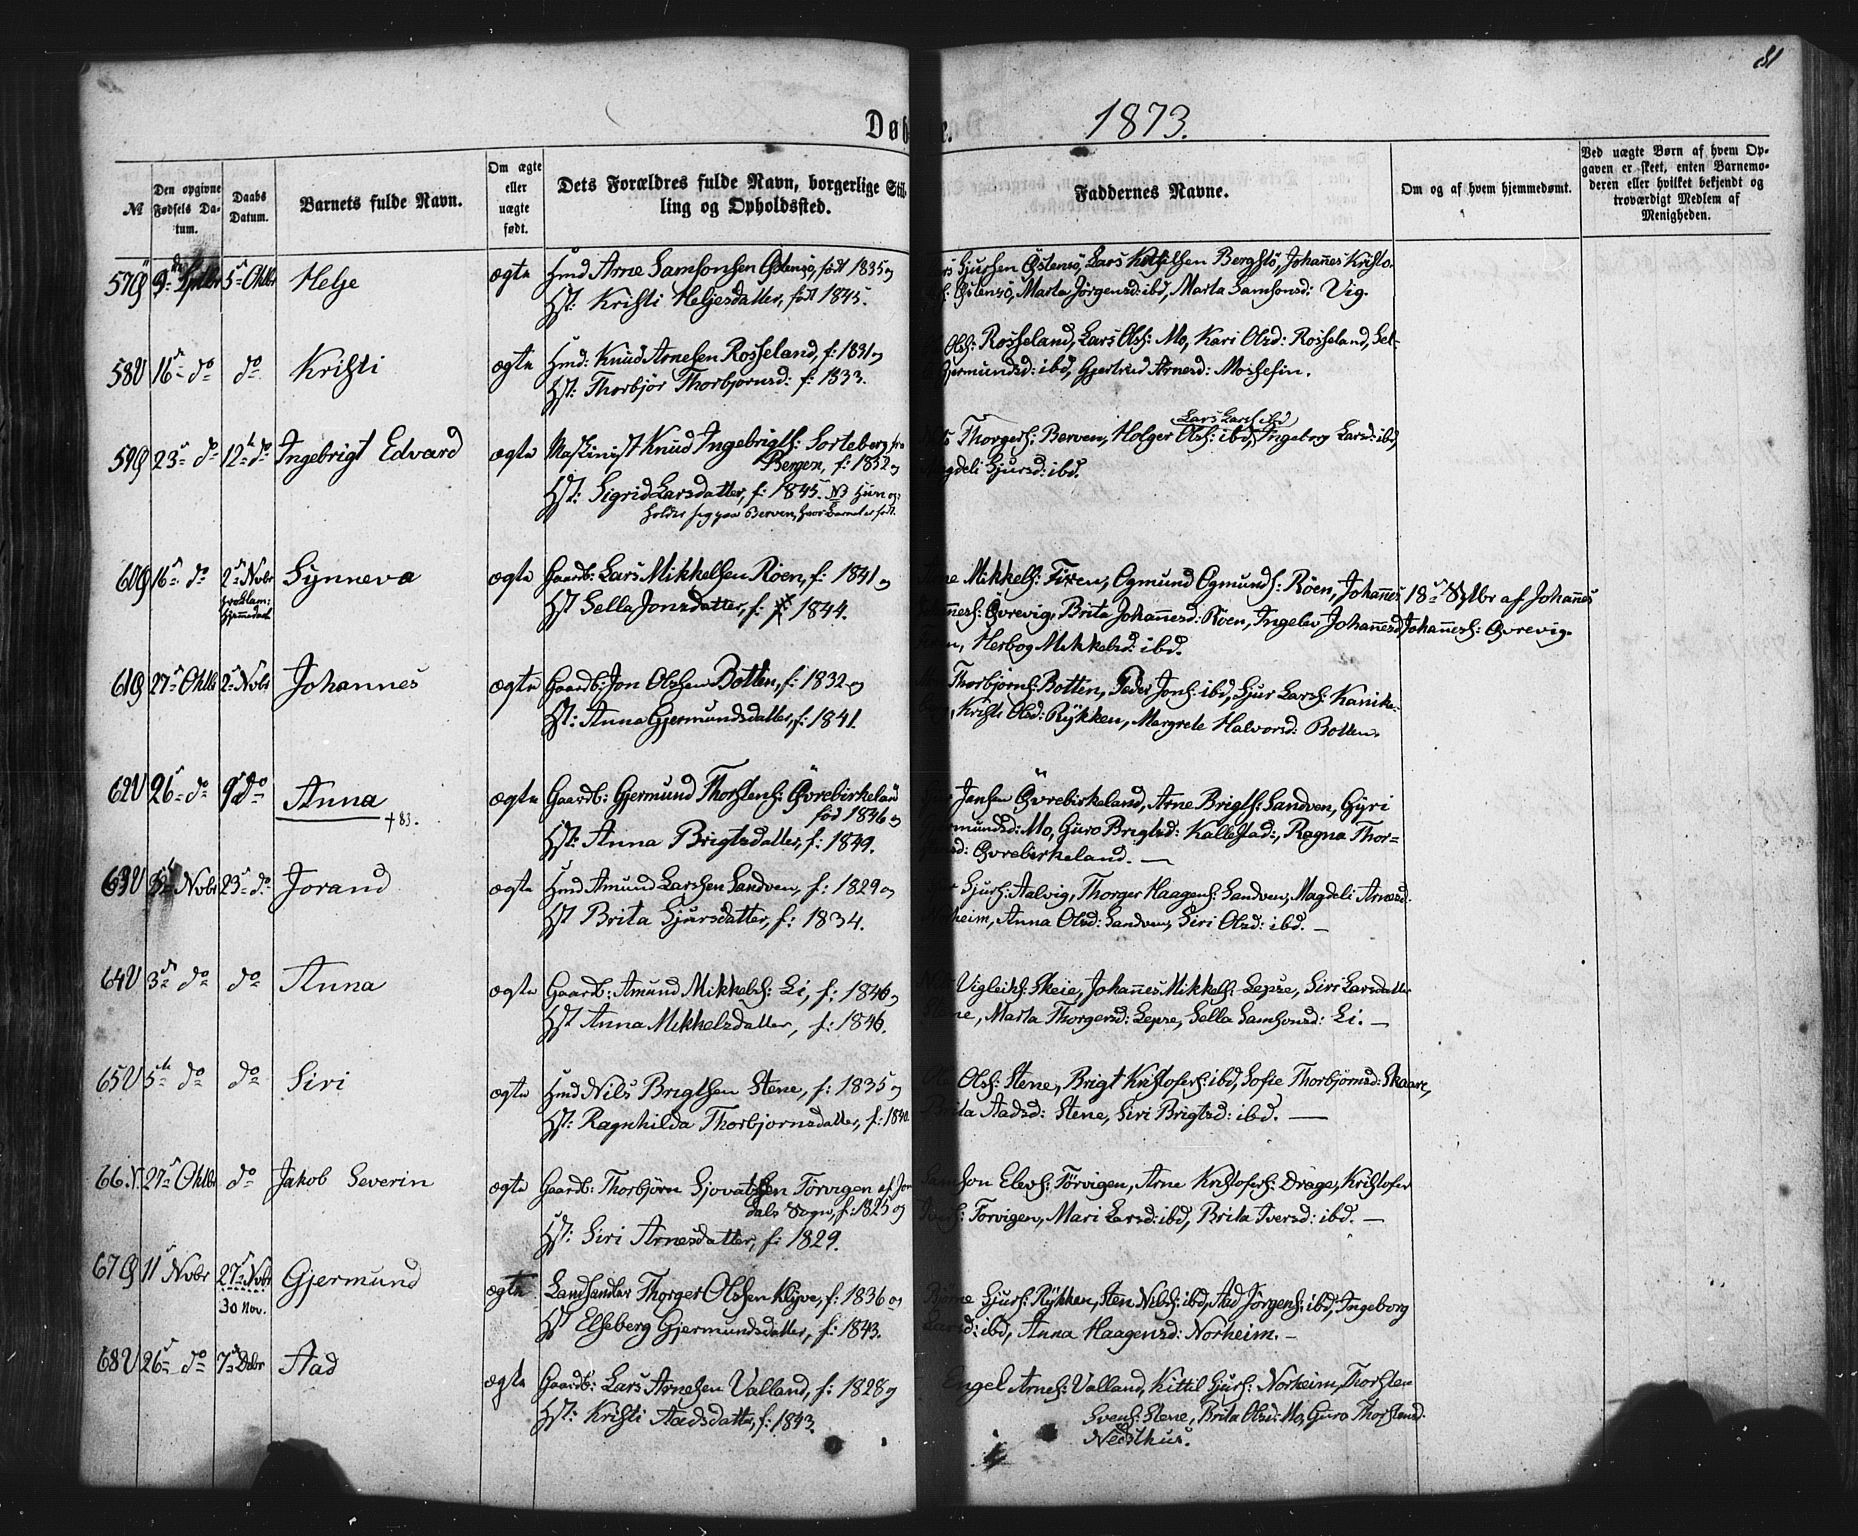 81
Døb e. 1873.
№
Den opgivne Fødsels Da-tum.
Daabs Datum.
Barnets fulde Navn.
Om ægte eller uægte født.
Dets Forældres fulde Navn, borgerlige Stil-
ling og Opholdssted.
Faddernes Navne.
Om og af hvem hjemmedømt.
Ved uægte Børn af hvem Op-
gaven er skeet, enten Barnemo-
deren eller hvilket bekjendt og
troværdigt Medlem af
Menigheden.
57 Helje ægte Hmd Arne Samsonsen Østensø, født 1835 og
Hst: Kristi Heljesdatter, født 1845.
Sjursen Østensø, Lars Bergstø, Johañes Kristo-
Østensø, Marta Jørgensd: ibd, Marta Samsonsd: Vig.
58U 16de do do Kristi ægte Hmd: Knud Arnesen Rosseland, f: 1831 og
Hst: Thorbjør Thorbjørnsd: f: 1833.
Ols: Rosseland, Lars Ols: Mo, Kari Olsd: Rosseland, Sel-
Gjermundsd: ibd, Gjertrud Arnesd: Mossesin.
59 23de do 12te do Ingebrigt Edvard ægte Maskinist Knud Ingebrigts: Sorteberg fra
Bergen, f: 1832 og
Hst: Sigrid Larsdatter, f: 1845. NB Hun op-
holder sig paa Berven, hvor Barnet er født.
Lars Lars: ibd
Thorgers: Berven, Holger Ols: ibd, Ingeborg Larsd: ibd,
Magdeli Sjursd: ibd.
60 16de do 2den Novbr Synneva ægte Gaardb: Lars Mikkelsen Røen, f: 1841 og
Hst Sella Jonsdatter, f: 1844.
Arne Mikkels: Ogmund Ogmunds: Røen, Johañes
Øvrevig, Brita Johañesd: Røen, Ingelev Johañesd
Herbog Mikkelsd: ibd.
18de Sptbr af Johañes
Johañess: Øvrevig.
61 27de Oktbr 2den Novbr Johannes ægte Gaardb: Jon Olssen Botten, f: 1832 og
Hst: Anna Gjermundsdatter, f: 1841.
Thorbjørns: Botten, Peder Jons: ibd, Sjur Lars: Kanike-
Kristi Olsd: Rykken, Margrete Halvorsd: Botten.
62U 26de do 9de do Anna +83. ægte Gaardb: Gjermund Thorstens: Øvrebirkeland
fød 1846 og
Hst: Anna Brigtsdatter, f: 1849.
Jansen Øvrebirkeland, Arne Brigts: Sandven, Gyri
Gjermundsd: Mo, Guro Brigtsd: Kallestad:, Ragna Thor-
Øvrebirkeland. —
63U Novbr 23de do Jorand ægte Hmd Amund Larssen Sandven, f: 1829 og
Hst Brita Sjursdatter, f: 1834.
Sjurs: Aalvig, Thorger Haagens: Sandven, Magdeli Arnesd:
Norheim, Anna Olsd: Sandven, Siri Olsd: ibd. —
64U 3de do do Anna ægte Gaardb: Amund Mikkels: Li, f: 1846 og
Hst Anna Mikkelsdatter, f: 1846.
Vigleiks: Skeie, Johañes Mikkels: Lepsø, Siri Larsdatter
Stene, Marta Thorgersd: Lepsø, Sella Samsonsd: Li. —
65U 5te do do Siri ægte Hmd Nils Brigtsen Stene, f: 1835 og
Hst: Ragnhilda Thorbjornsdatter, f: 1840.
Ole Ols: Stene, Brigt Kristofers: ibd, Sofie Thorbjörnsd: Skaare,
Brita Aadsd: Stene, Siri Brigtsd: ibd. —
66. 27de Oktbr do Jakob Severin ægte Gaardb: Thorbjörn Sjovatsen Törvigen af Jon
dals Sogn, f: 1825 og
Hst: Siri Arnesdatter, f: 1829.
Samson Elevs: Törvigen, Arne Kristofers: Drage, Kristofer
Torvigen, Mari Larsd: ibd, Brita Iversd: ibd. —
67 11 Novbr 27de Novbr 30 Nov. Gjermund ægte Landhandler Thorger Olssen Klyve, f: 1836 og
Hst Elseberg Gjermundsdatter, f: 1843.
Bjørne Sjurs: Rykken, Sten Nils: ibd, Aad Jörgens: ibd, Ingeborg
Larsd: ibd, Anna Haagensd: Norheim. —
68U 26de do 7de Debr Aad ægte Gaardb: Lars Arnesen Valland, f: 1828 og
Hst: Kristi Aadsdatter, f: 1843.
Engel Arnes: Valland, Kittil Sjurs: Norheim, Thorsten
Svens: Stene, Brita Olsd: Mo, Guro Thorstensd.
Nedsthus.